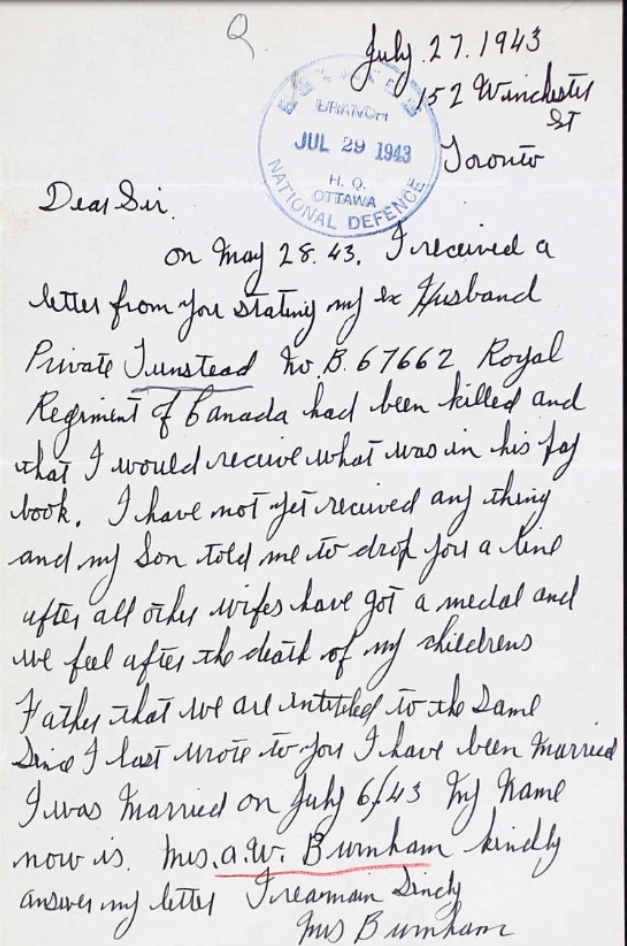 Q.
July. 27. 1943
152 Winchester
ST
Toronto
BRANCH
JUL 29 1943
H. Q.
OTTAWA
NATIONAL DEFENCE
Dear Sir.
on May 28. 43. I received a
letter from you stating my ex Husband
Private Tunstead No. B. 67662 Royal
Regiment of Canada had been killed and
that I would receive what was in his pay
book. I have not yet received any thing
and my Son told me to drop you a line
after all other wifes have got a medal and
we feel after the death of my childrens
Father that we are intitled to the Same
Since I last wrote to you I have been Married
I was Married on July 6/43 My Name
now is. Mrs. A. W. Burnham kindly
answer my letter I reamain
Mrs Burnham